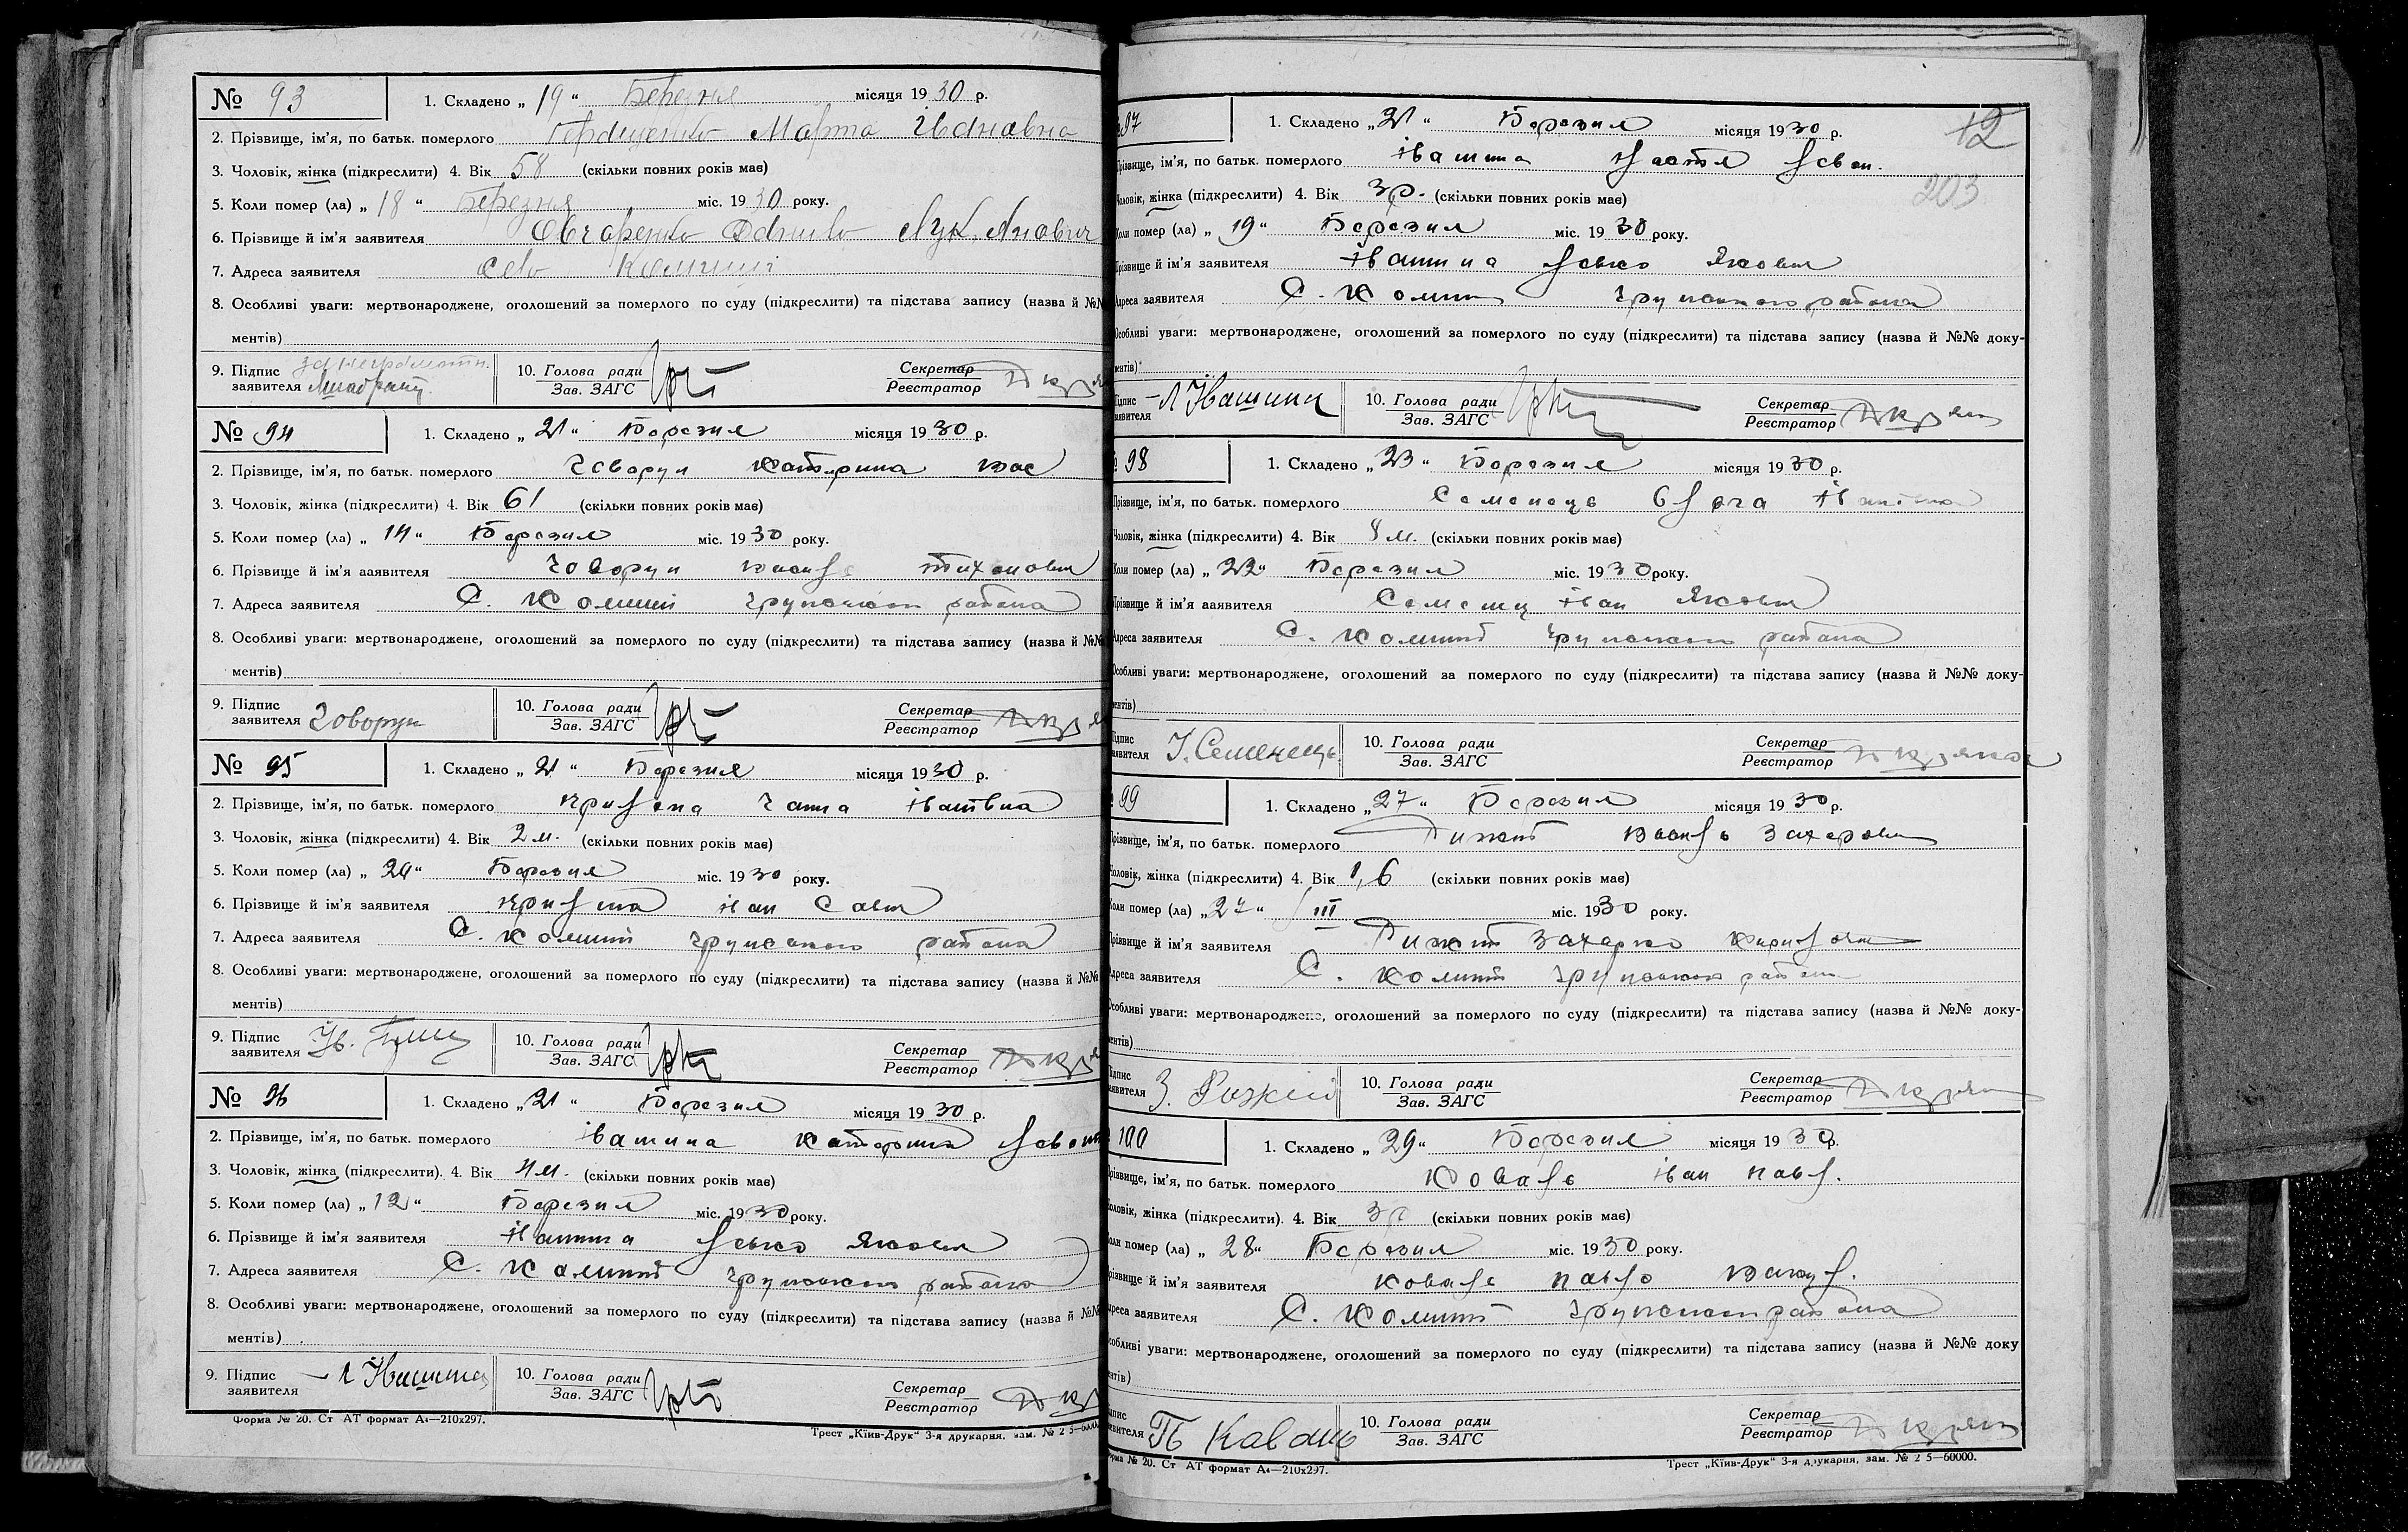 № 93 1. Складено „ 19 “ Березня місяця 1930 р.
2. Прізвище, ім’я, по батьк. померлого Марта Івановна
3. Чоловік, жінка (підкреслити) 4. Вік 58 (скільки повних років має)
5. Коли помер (ла) „ 18 “ Березня міс. 1930 року.
6. Прізвище й ім’я заявителя
7. Адреса заявителя село
8. Особливі уваги: мертвонароджене, оголошений за померлого по суду (підкреслити) та підстава запису (назва й №№
ментів)
9. Підпис заявителя
10. Голова ради Зав. ЗАГС Секретар Реєстратор
№ 94 1. Складено „ 21 “ Березня місяця 1930 р.
2. Прізвище, ім’я, по батьк. померлого Говорун Катерина Вас
3. Чоловік, жінка (підкреслити) 4. Вік 61 (скільки повних років має)
5. Коли помер (ла) „ 14 “ Березня міс. 1930 року.
6. Прізвище й ім’я заявителя Говорун Василь Тихонович
7. Адреса заявителя С. Комиші Грунського района
8. Особливі уваги: мертвонароджене, оголошений за померлого по суду (підкреслити) та підстава запису (назва й №№
ментів)
9. Підпис заявителя Говорун
10. Голова ради Зав. ЗАГС Секретар Реєстратор
№ 95 1. Складено „ 21 “ Березня місяця 1930 р.
2. Прізвище, ім’я, по батьк. померлого Ганна Івановна
3. Чоловік, жінка (підкреслити) 4. Вік 2 м. (скільки повних років має)
5. Коли помер (ла) „ 20 “ Березня міс. 1930 року.
6. Прізвище й ім’я заявителя Іван Савич
7. Адреса заявителя С. Комиші Грунського района
8. Особливі уваги: мертвонароджене, оголошений за померлого по суду (підкреслити) та підстава запису (назва й №№
ментів)
9. Підпис заявителя Ів.
10. Голова ради Зав. ЗАГС Секретар Реєстратор
№ 96 1. Складено „ 21 “ Березня місяця 1930 р.
2. Прізвище, ім’я, по батьк. померлого Івашина Катерина
3. Чоловік, жінка (підкреслити). 4. Вік 4 м. (скільки повних років має)
5. Коли помер (ла) „ 12 “ Березня міс. 1930 року.
6. Прізвище й ім’я заявителя Івашина Левко Якович
7. Адреса заявителя С. Комиші Грунського района
8. Особливі уваги: мертвонароджене, оголошений за померлого по суду (підкреслити) та підстава запису (назва й №№
ментів)
9. Підпис заявителя Л Івашина
10. Голова ради Зав. ЗАГС Секретар Реєстратор
Форма № 20. Ст АТ формат А₄—210x297.
Трест „Київ-Друк“ 3-я друкарня, зам. № 2 5—60000
12
203
97 1. Складено „ 21 “ Березня місяця 1930 р.
різвище, ім’я, по батьк. померлого Івашина Настя Левон.
Чоловік, жінка (підкреслити) 4. Вік 3 р. (скільки повних років має)
Коли помер (ла) „ 19 “ Березня міс. 1930 року.
Прізвище й ім’я заявителя Івашина Левко Якович
Адреса заявителя С. Комиші Грунського района
Особливі уваги: мертвонароджене, оголошений за померлого по суду (підкреслити) та підстава запису (назва й №№ доку-
ментів)
Підпис заявителя Л Івашина
10. Голова ради Зав. ЗАГС Секретар Реєстратор
98 1. Складено „ 23 “ Березня місяця 1930 р.
Прізвище, ім’я, по батьк. померлого Семенець Ольга Іванівна
Чоловік, жінка (підкреслити) 4. Вік 8 м. (скільки повних років має)
Коли помер (ла) „ 22 “ Березня міс. 1930 року.
Прізвище й ім’я заявителя Семенец Іван Якович
Адреса заявителя С. Комиші Грунського района
Особливі уваги: мертвонароджене, оголошений за померлого по суду (підкреслити) та підстава запису (назва й №№ доку-
ментів)
Підпис заявителя І. Семенець
10. Голова ради Зав. ЗАГС Секретар Реєстратор
99 1. Складено „ 27 “ Березня місяця 1930 р.
Прізвище, ім’я, по батьк. померлого Василь Захарович
Чоловік, жінка (підкреслити) 4. Вік 1,6 (скільки повних років має)
Коли помер (ла) „ 27 “ III міс. 1930 року.
Прізвище й ім’я заявителя Захарко Кирилович
Адреса заявителя С. Комиші Грунського района
Особливі уваги: мертвонароджене, оголошений за померлого по суду (підкреслити) та підстава запису (назва й №№ доку-
ментів)
Підпис заявителя З.
10. Голова ради Зав. ЗАГС Секретар Реєстратор
100 1. Складено „ 29 “ Березня місяця 1930 р.
Прізвище, ім’я, по батьк. померлого Коваль Іван Павл.
Чоловік, жінка (підкреслити). 4. Вік 3 р (скільки повних років має)
Коли помер (ла) „ 28 “ Березня міс. 1930 року.
Прізвище й ім’я заявителя Коваль Павло
Адреса заявителя С. Комиші Грунського района
Особливі уваги: мертвонароджене, оголошений за померлого по суду (підкреслити) та підстава запису (назва й №№ доку
ментів)
Підпис заявителя Коваль
10. Голова ради Зав. ЗАГС Секретар Реєстратор
Форма № 20. Ст АТ формат А₄—210x297.
Трест „Київ-Друк“ 3-я друкарня, зам. № 2 5—60000.